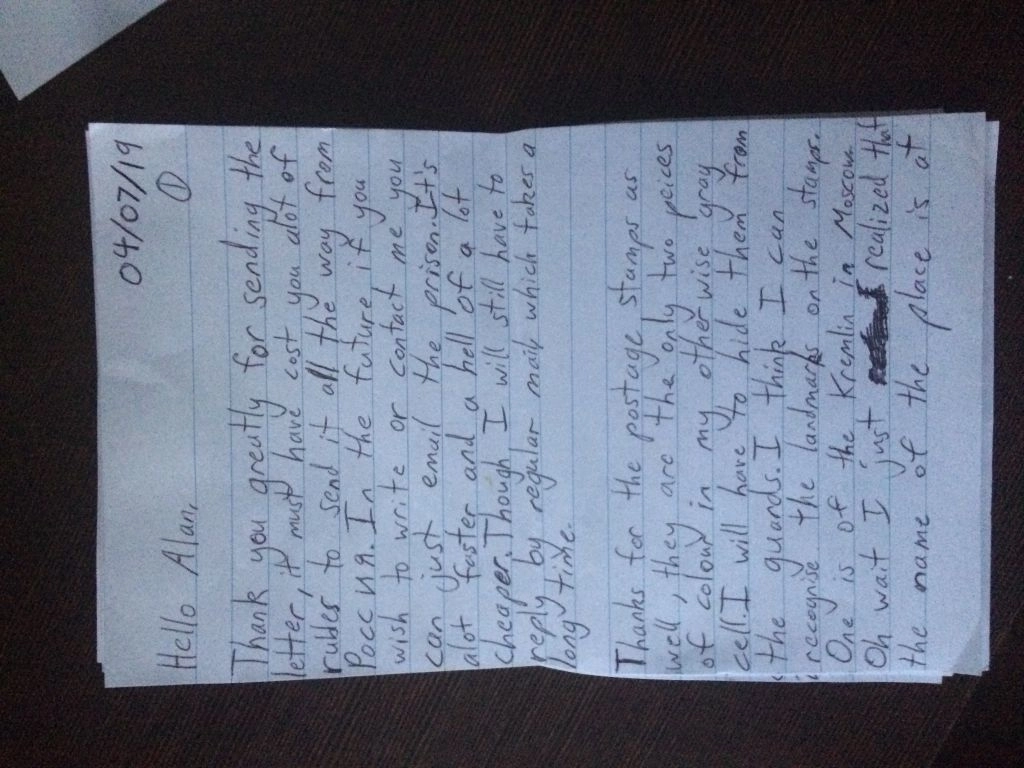 04/07/19
①
Hello Alan,
Thank you greatly for sending the
letter, it must have cost you alot of
rubles to send it all the way from
Россия. In the future if you
wish to write or contact me you
can just email the prison. It's
alot faster and a hell of a lot
cheaper. Though I will still have to
reply by regular maily which takes a
long time.
Thanks for the postage stamps as
well, they are the only two peices
of colour in my otherwise gray
cell. I will have to hide them from
the guards. I think I can
recognise the landmarks on the stamps.
One is of the Kremlin in Moscow.
Oh wait I just realized that
the name of the place is at